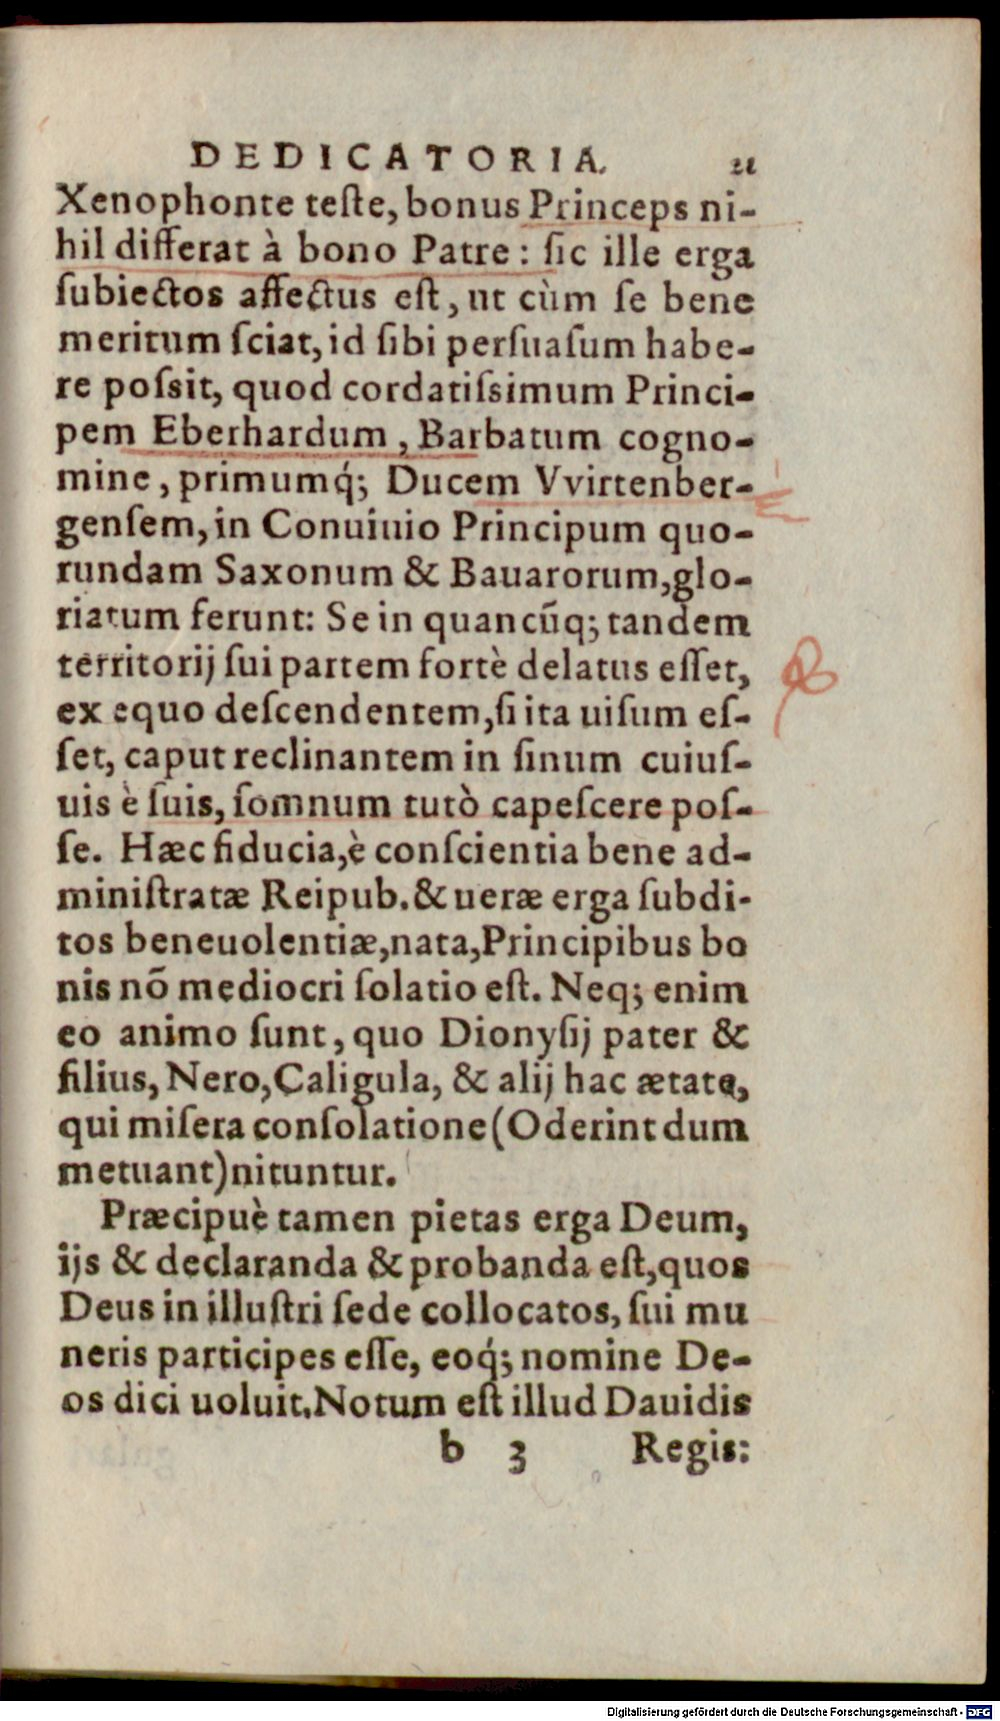 DEDICATORIA. 21
Xenophonte teſte, bonus Princeps ni-
hil differat à bono Patre : ſic ille erga
ſubiectos affectus eſt, ut cùm ſe bene
meritum ſciat, id ſibi perſuaſum habe-
re poſsit, quod cordatiſsimum Princi-
pem Eberhardum, Barbatum cogno-
mine, primumq́; Ducem Vvirtenber-
genſem, in Conuiuio Principum quo-
rundam Saxonum & Bauarorum, glo-
riatum ferunt: Se in quancũq; tandem
territorij ſui partem fortè delatus eſſet,
ex equo deſcendentem, ſi ita uiſum eſ-
ſet, caput reclinantem in ſinum cuiuſ-
uis è ſuis, ſomnum tutò capeſcere poſ-
ſe. Hæc fiducia, è conſcientia bene ad-
miniſtratæ Reipub. & ueræ erga ſubdi-
tos beneuolentiæ, nata, Principibus bo
nis nõ mediocri ſolatio eſt. Neq; enim
eo animo ſunt, quo Dionyſij pater &
filius, Nero, Caligula, & alij hac ætate,
qui miſera conſolatione (Oderint dum
metuant) nituntur.
Præcipuè tamen pietas erga Deum,
ijs & declaranda & probanda eſt, quos
Deus in illuſtri ſede collocatos, ſui mu
neris participes eſſe, eoq́; nomine De-
os dici uoluit. Notum eſt illud Dauidis
b 3 Regis:
Digitalisierung gefördert durch die Deutsche Forschungsgemeinschaft - DFG